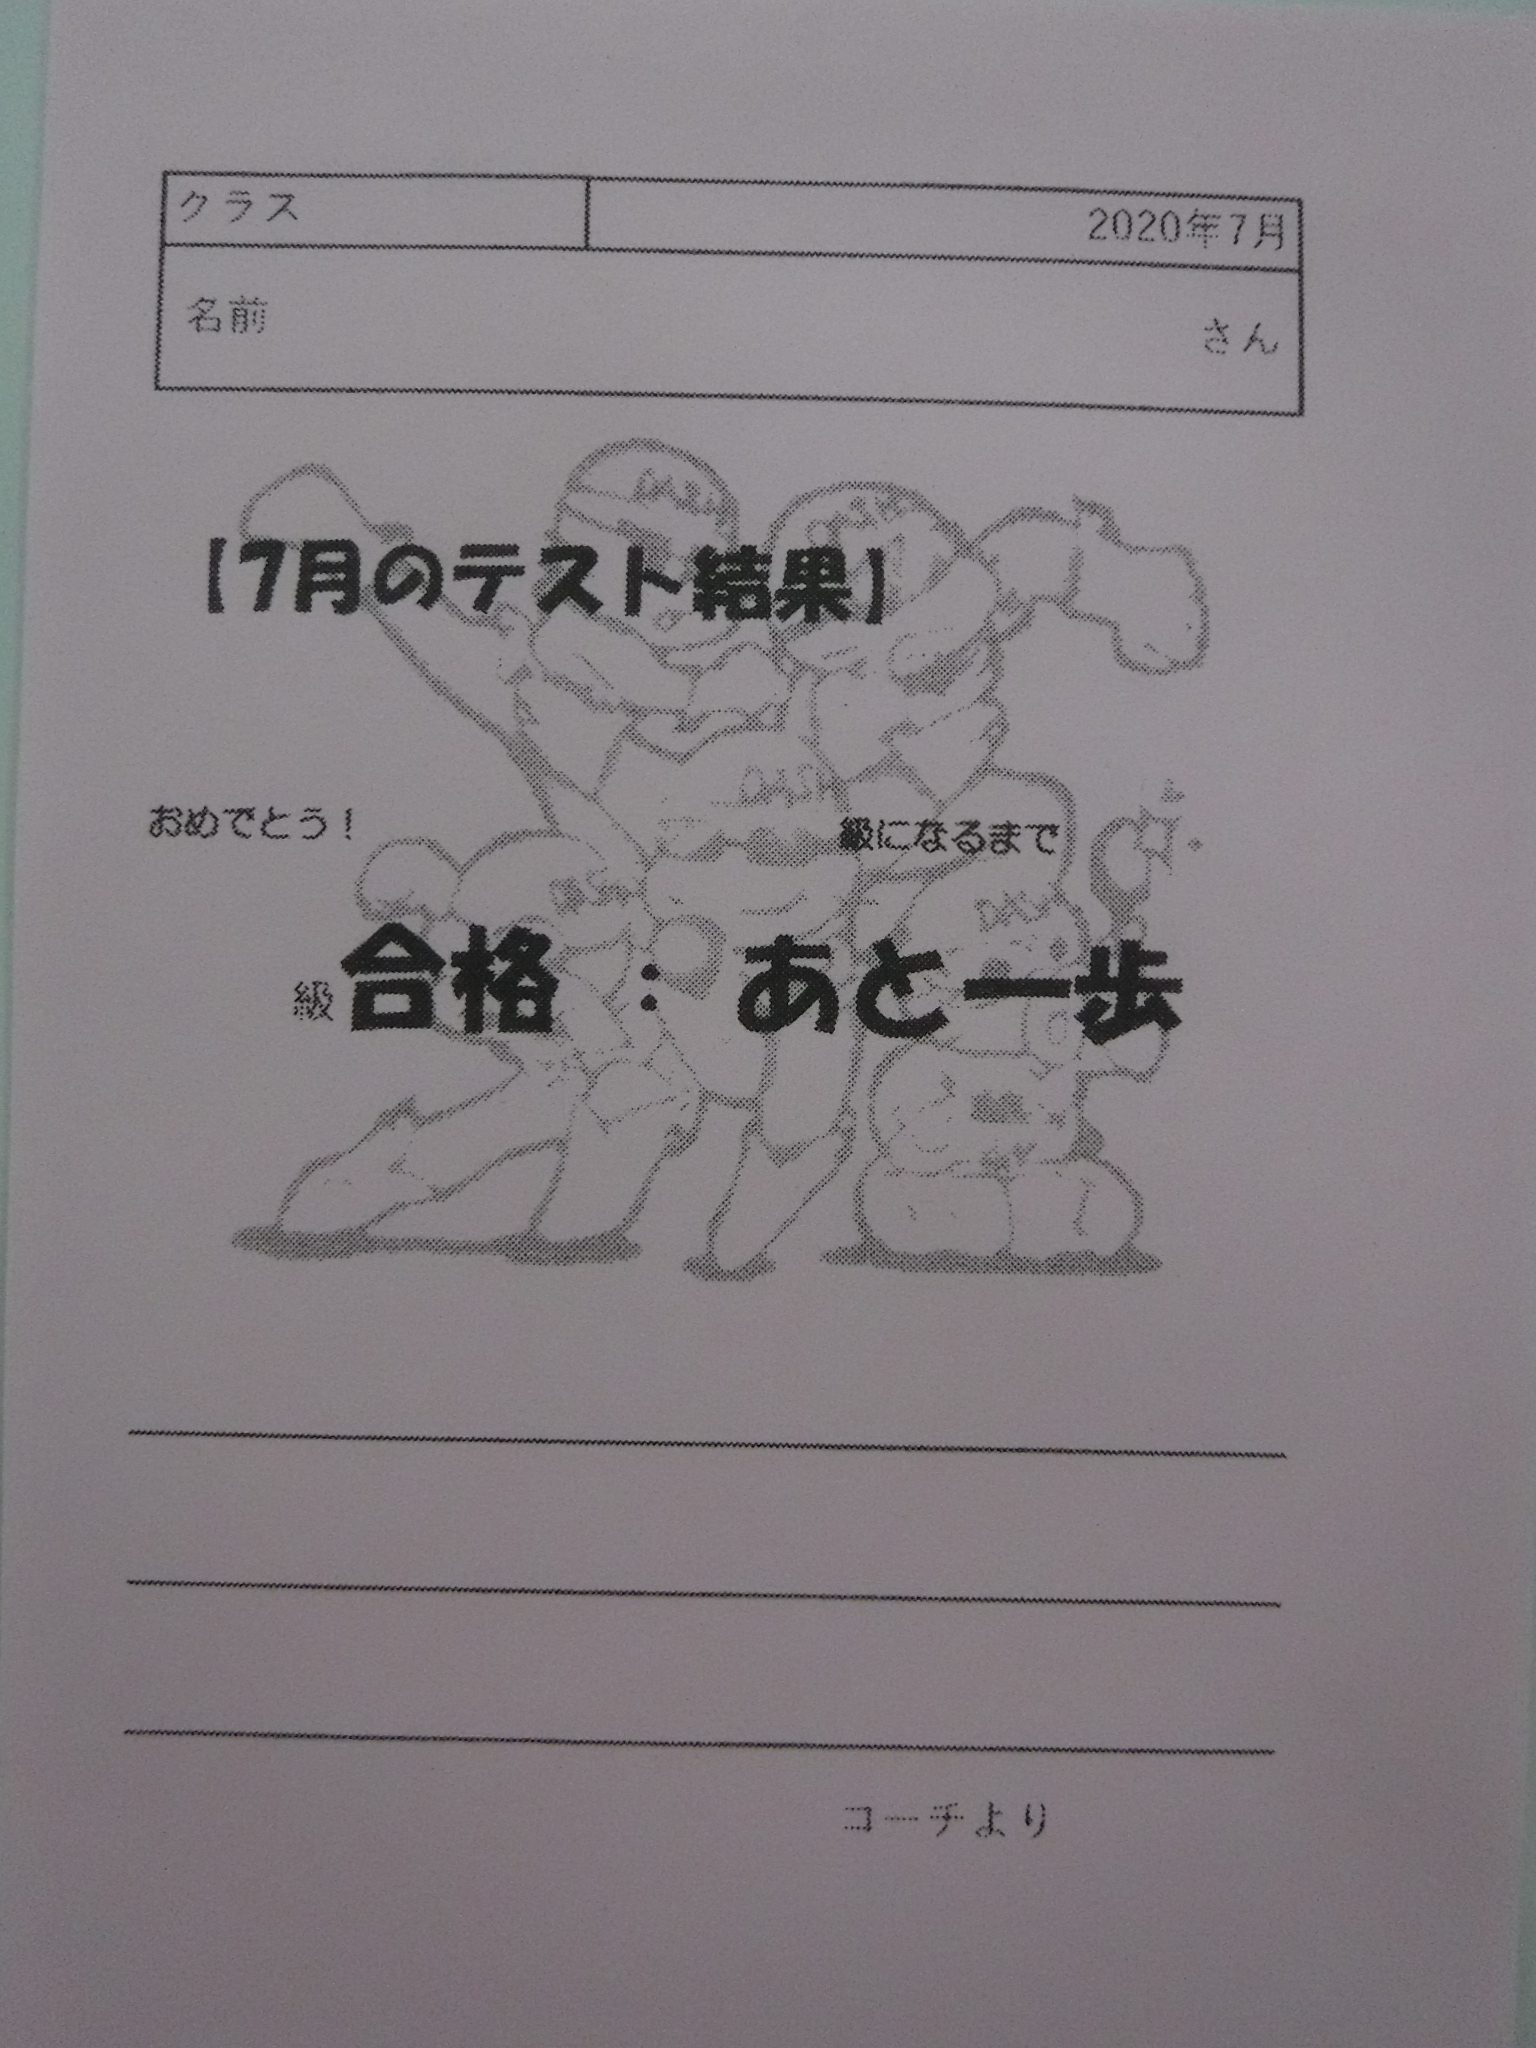 クラス 2020年7月
名前 さん
【7月のテスト結果】
おめでとう！ 級になるまで
級合格 : あと一歩
コーチより